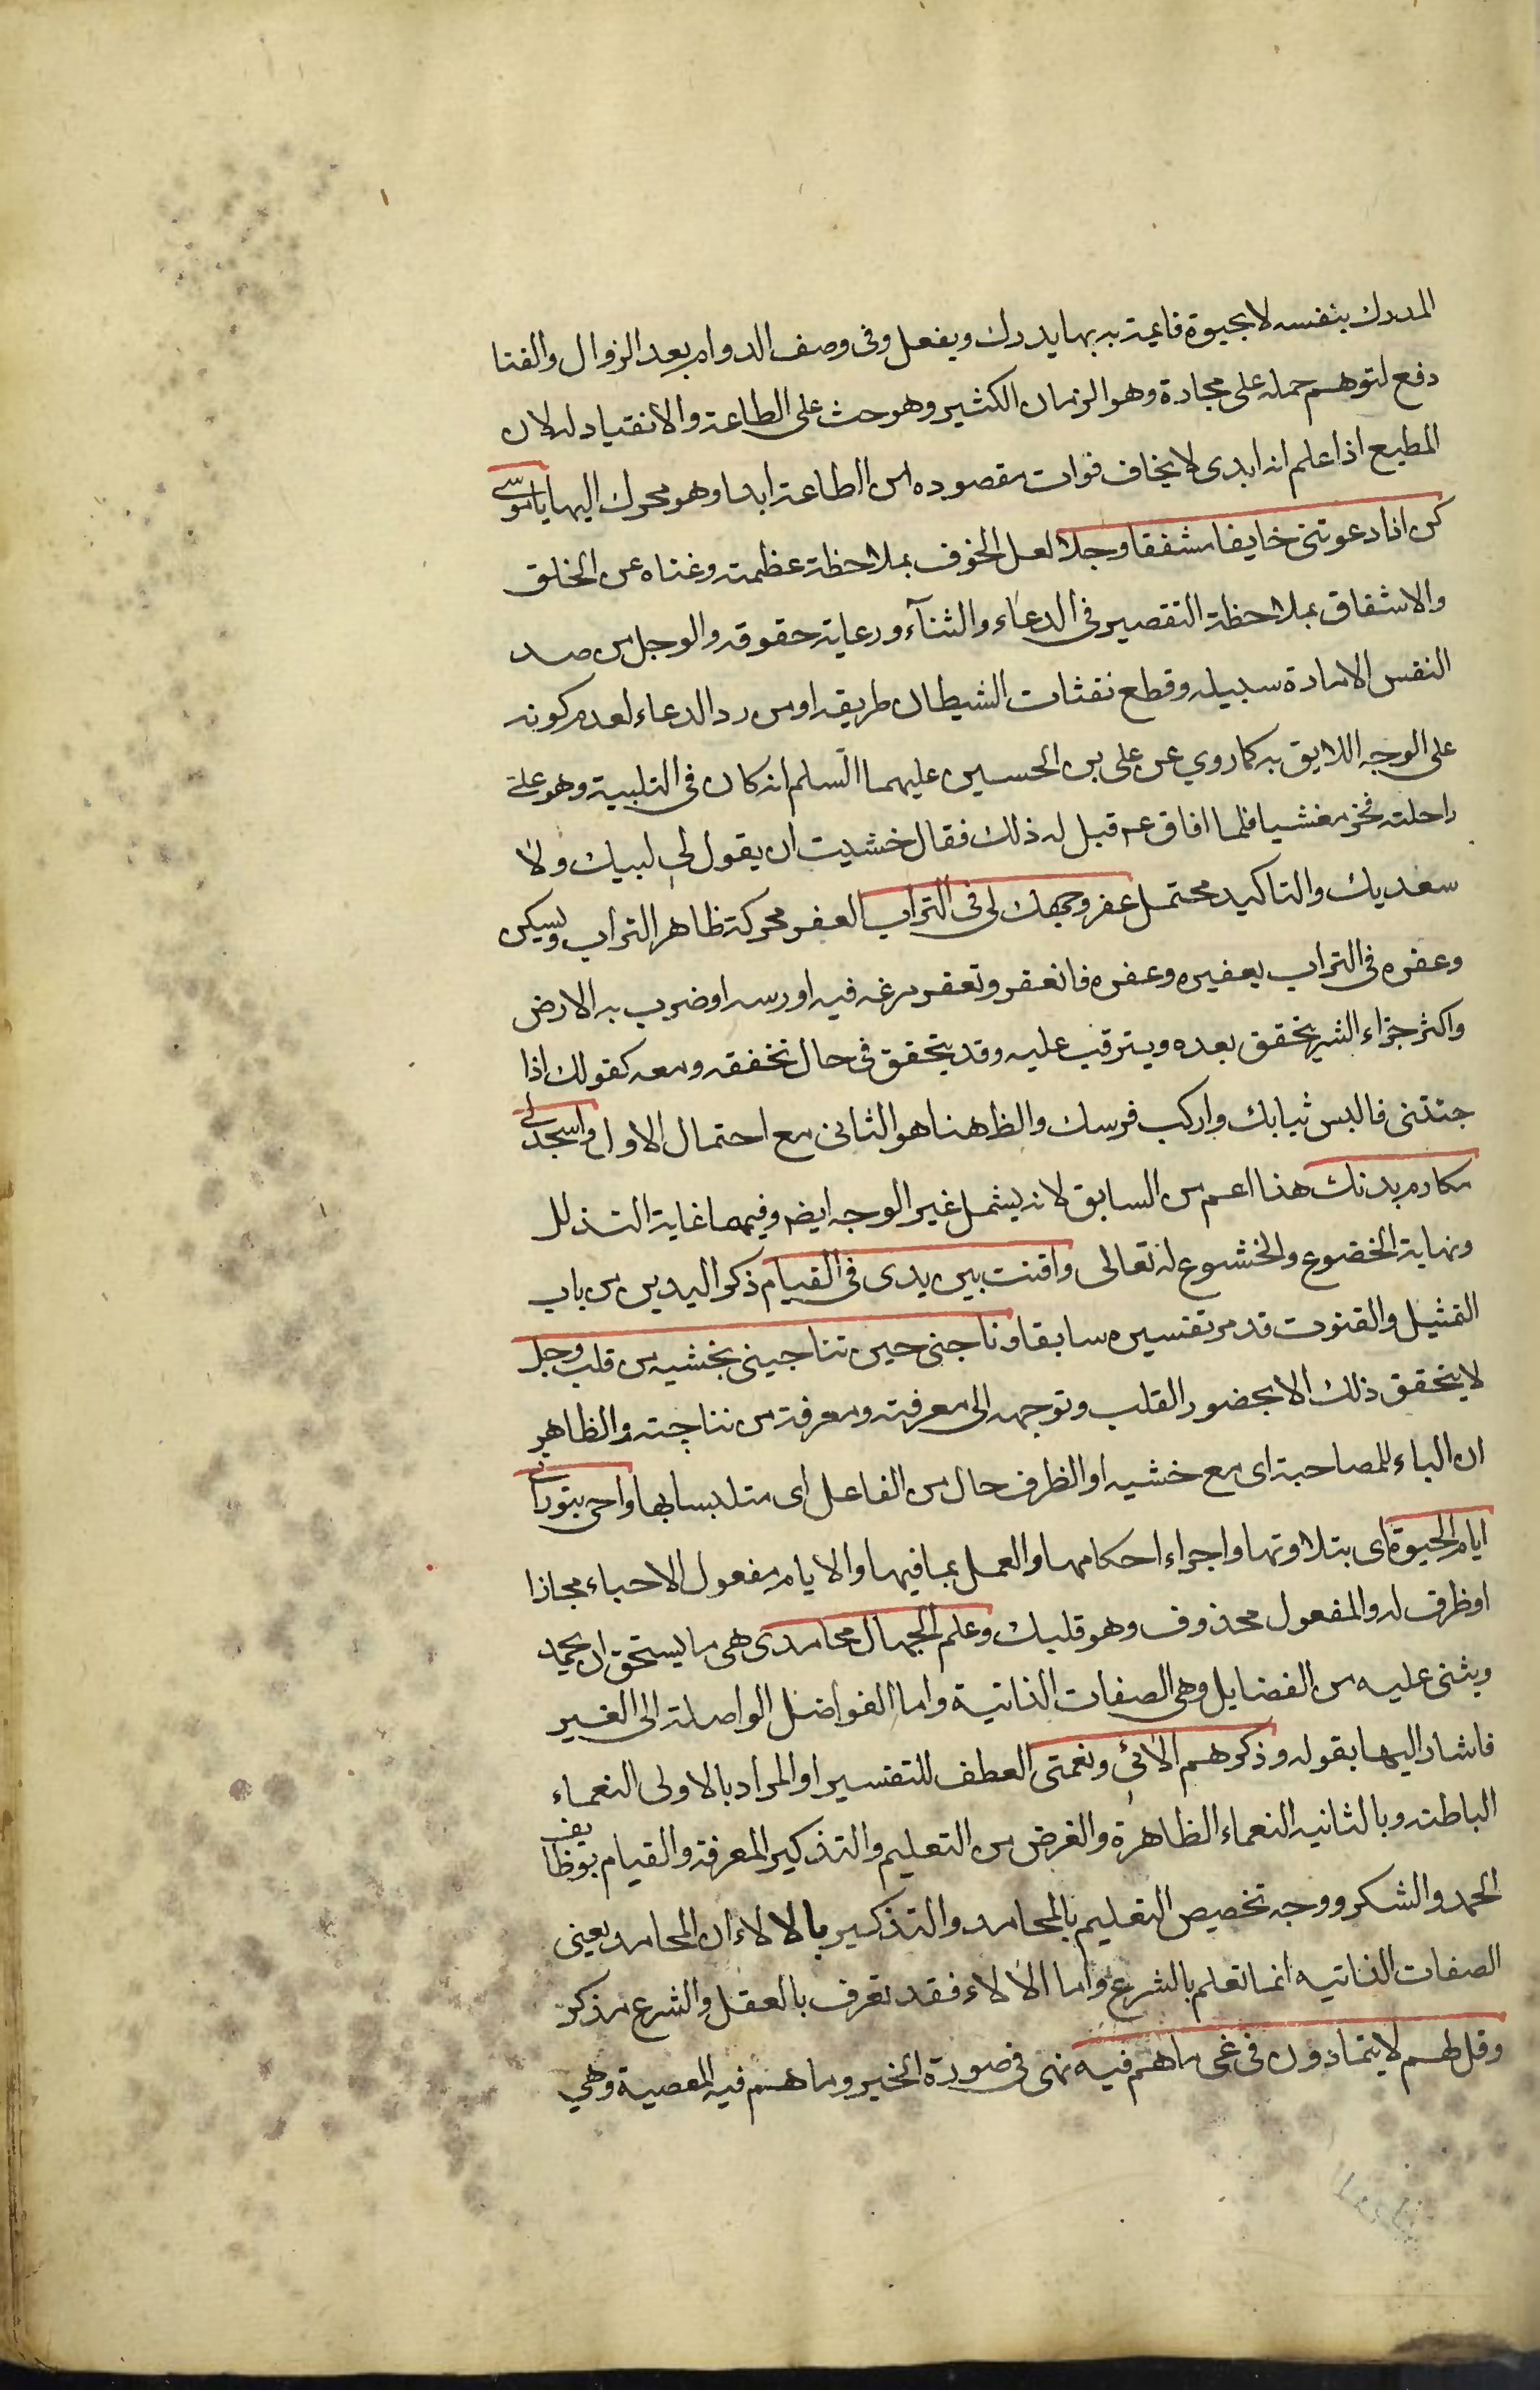 المدرك بنفسه لا بحيوة قايمة به بها يدرك ويفعل وفى وصف الدوام بعد الزوال والفنا
دفع لتوهم حمله على مجازه وهو الزمان الكثير وهو حث على الطاعة والانقياد له لان
المطيع اذا علم انه ابدى لا يخاف فوات مقصوده من الطاعة ابدا وهو محرك اليها يا موسى
كن اذا دعوتنى خايفا مشفقا وجلا لعل الخوف بملاحظة عظمته وغناه عن الخلق
والاشفاق بملاحظة التقصير فى الدعاء والثنآء ورعاية حقوقه والوجل من صد
النفس الامارة سبيله وقطع نفثات الشيطان طريقه او من رد الدعاء لعدم كونه
على الوجه اللايق به كما روي عن على بن الحسين عليهما السلم انه كان فى التلبية وهو على
راحلته فخر مغشيا فلما افاق عم قيل له ذلك فقال خشيت ان يقول لى لا لبيك ولا
سعديك والتاكيد محتمل عفر وجهك لى فى التراب العفر محركة ظاهر التراب ويسكن
وعفره فى التراب يعفيره وعفره فانعفر وتعفر مرغه فيه او رسه او ضرب به الارض
واكثر جزاء الشر يتحقق بعده ويترقب عليه وقد يتحقق فى حال تحققه ومعه كقولك اذا
جئتنى فالبس ثيابك واركب فرسك والظ هنا هو الثانى مع احتمال الاول واسجد لى
مكارم بدنك هذا اعم من السابق لانه يشمل غير الوجه ايضه وفيهما غاية التذلل
ونهاية الخضوع والخشوع له تعالى واقنت بين يدى فى القيام ذكر اليدين من باب
التمثيل والقنوت قد مر تفسيره سابقا وناجنى حين تناجينى بخشيه من قلب وجل
لا يتحقق ذلك الا بحضور القلب وتوجهه الى معرفته ومعرفة من نناجيته والظاهر
ان الباء للمصاحبة اى مع خشيه او الظرف حال من الفاعل اى متلبسا بها واحى بتوراتى
ايام الحيوة اى بتلاوتها واجراء احكامها والعمل بما فيها والايام مفعول الاحياء مجازا
او ظرف له والمفعول محذوف وهو قلبك وعلم الجهال محامدى هى ما يستحق ان يحمد
ويثنى عليه من الفضايل وهى الصفات الذاتية واما الفواضل الواصلة الى الغير
فاشار اليها بقوله وذكرهم الائى ونعمتى العطف للتفسير او المراد بالاولى النعماء
الباطنه وبالثانيه النعماء الظاهرة والغرض من التعليم والتذكير المعرفة والقيام بوظايف
الحمد والشكر ووجه تخصيص التعليم بالمحامد والتذكير بالالاء ان المحامد يعنى
الصفات الذاتيه انما تعلم بالشرع واما الالاء فقد تعرف بالعقل والشرع مذكر
وقل لهم لا يتمادون فى غى ما هم فيه نهى فى صورة الخبر وما هم فيه المعصية وهي